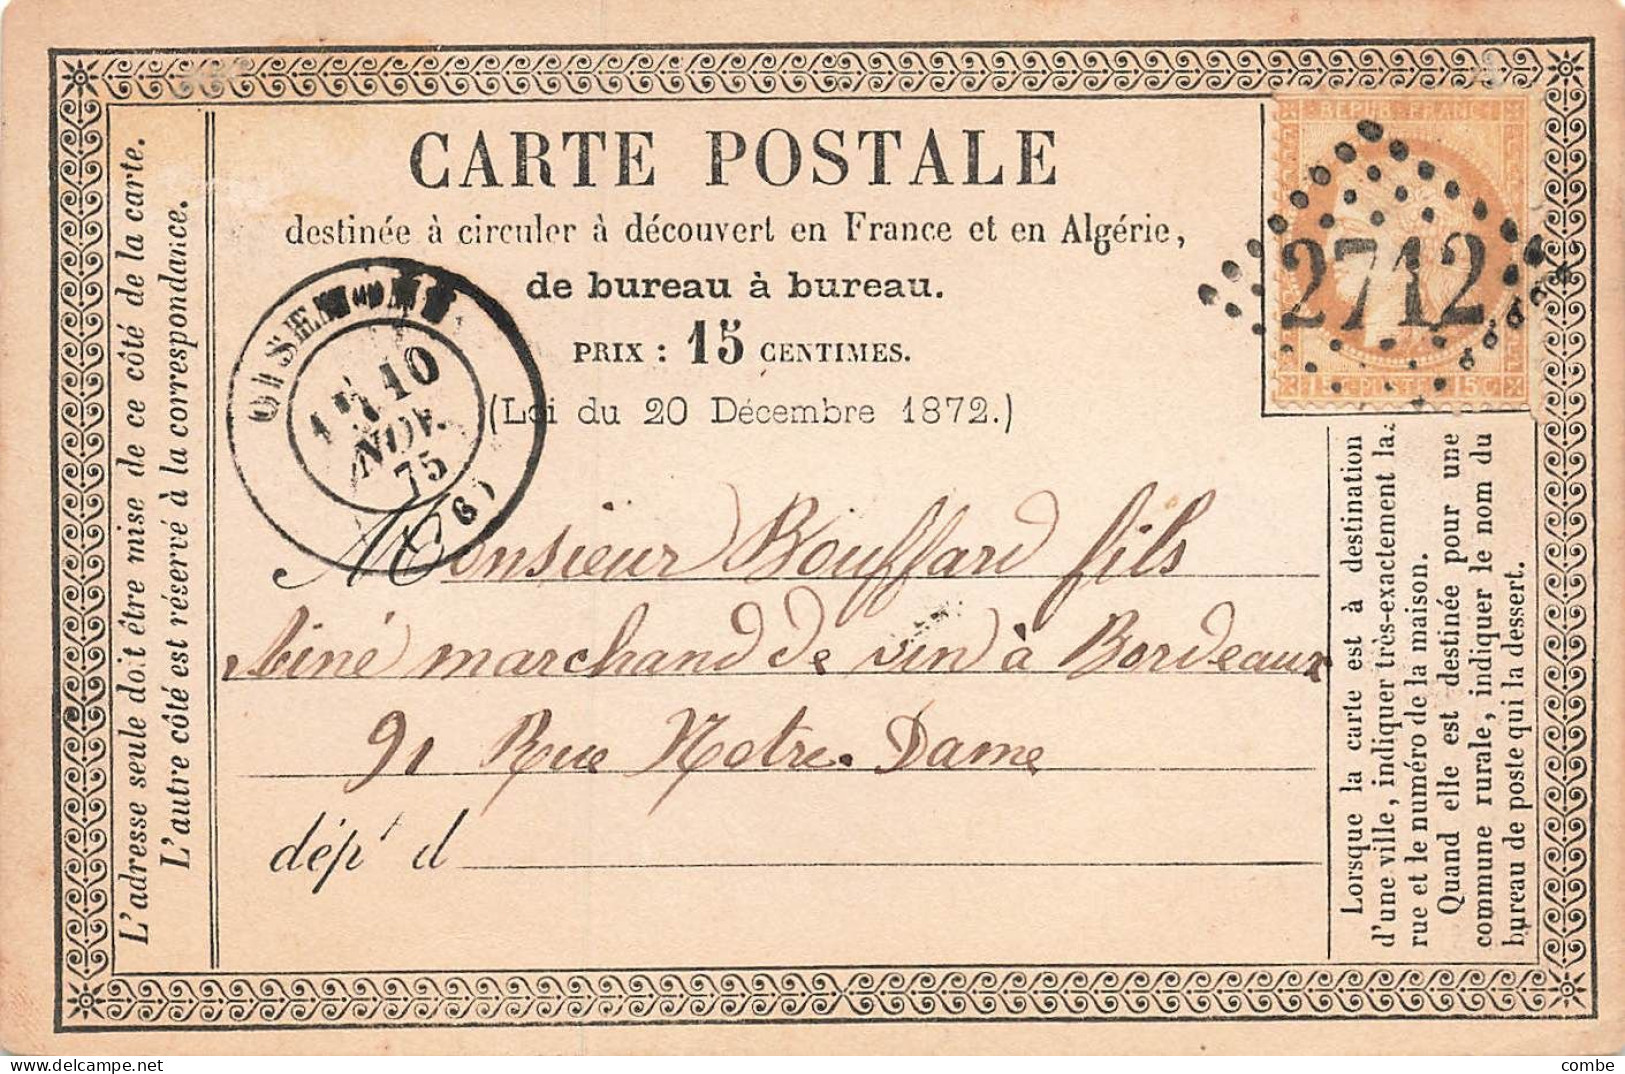 CARTE POSTALE
destinée à circuler à découvert en France et en Algérie,
de bureau à bureau.
PRIX : 15 CENTIMES.
(Loi du 20 Décembre 1872.)
REPUB. FRANC.
15 C. POSTES 15 C.
2712
OISEMONT
10
NOV.
75
(76)
Monsieur Bouffard fils
Ainé marchand de vin à Bordeaux
91 Rue Notre-Dame
dépt d
L'adresse seule doit être mise de ce côté de la carte.
L'autre côté est réservé à la correspondance.
Lorsque la carte est à destination
d'une ville, indiquer très-exactement la
rue et le numéro de la maison.
Quand elle est destinée pour une
commune rurale, indiquer le nom du
bureau de poste qui la dessert.
combe